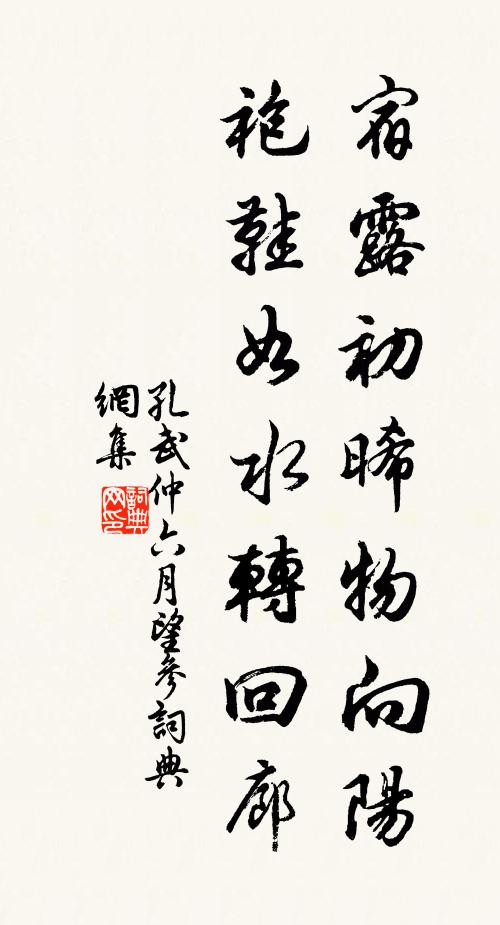 宿露初晞物向陽
袍鞋如水轉回廊
孔武仲六月望參詞典
網集
詞典網印